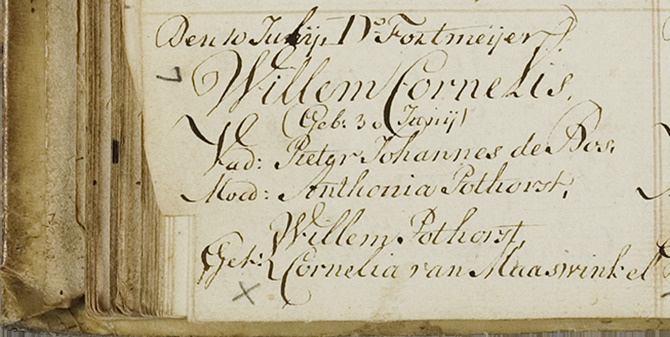 Den 10 Julij, Ds Fortmeijer
Willem Cornelis,
(Geb: 30 Junij)
Vad: Pieter Johannes de Bos,
Moed: Anthonia Pothorst,
Willem Pothorst,
Get: Cornelia van Maaswinkel